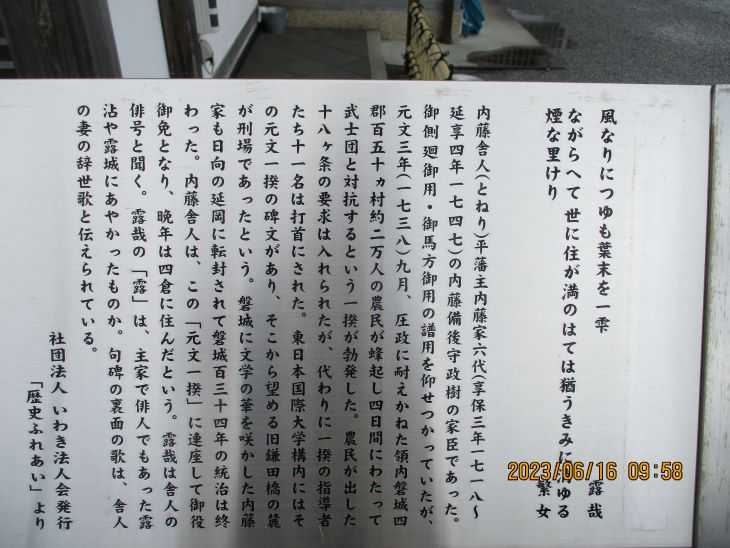 風なりにつゆも葉末を一雫
露哉
ながらへて世に住が満のはては猶うきみに
ゆる
煙な里けり
繁女
内藤舎人(とねり)平藩主内藤家六代(享保三年一七一八〜
延享四年一七四七)の内藤備後守政樹の家臣であった。
御側廻御用・御馬方御用の譜用を仰せつかっていたが、
元文三年(一七三八)九月、圧政に耐えかねた領内磐城四
郡百五十ヵ村約二万人の農民が蜂起し四日間にわたって
武士団と対抗するという一揆が勃発した。農民が出した
十八ヶ条の要求は入れられたが、代わりに一揆の指導者
たち十一名は打首にされた。東日本国際大学構内にはそ
の元文一揆の碑文があり、そこから望める旧鎌田橋の麓
が刑場であったという。磐城に文学の華を咲かした内藤
家も日向の延岡に転封されて磐城百三十四年の統治は終
わった。内藤舎人は、この「元文一揆」に連座して御役
御免となり、晩年は四倉に住んだという。露哉は舎人の
俳号と聞く。露哉の「露」は、主家で俳人でもあった露
沾や露城にあやかったものか。句碑の裏面の歌は、舎人
の妻の辞世歌と伝えられている。
社団法人 いわき法人会発行
「歴史ふれあい」より
2023/06/16 09:58